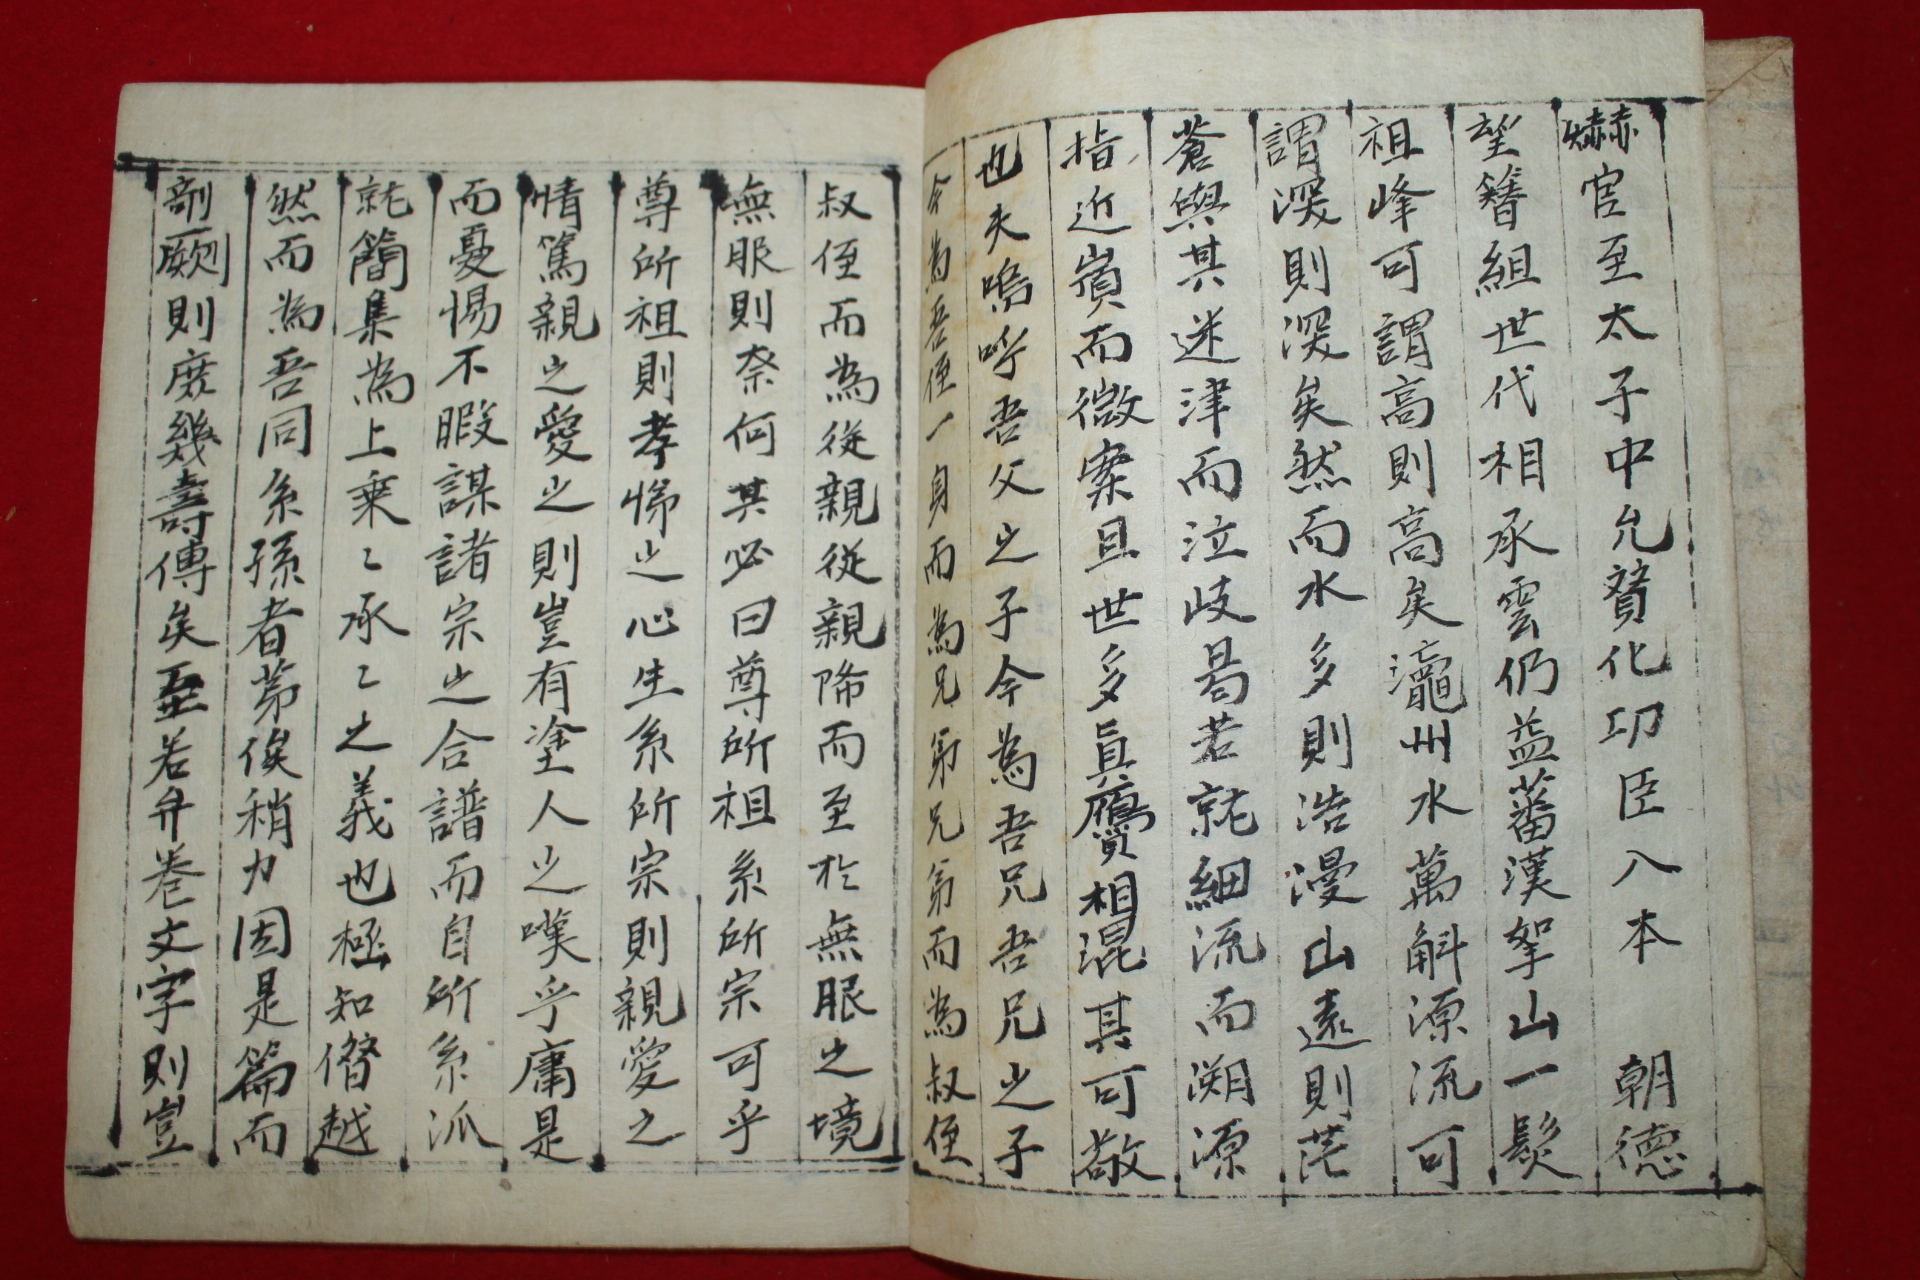 爀官至太子中允贊化功臣入本 朝德
望簪組世代相承雲仍益蕃漢拏山一髮
祖峰可謂高則高矣瀛州水萬斛源流可
謂深則深矣然而水多則浩漫山遠則茫
蒼與其迷津而泣歧曷若就細流而溯源
指近嶺而微案且世多眞贗相混其可敬
也夫嗚呼吾父之子今爲吾兄吾兄之子
今爲吾侄一身而爲兄弟兄弟而爲叔侄
叔侄而爲從親從親降而至於無服之境
無服則奈何其必曰尊所祖系所宗可乎
尊所祖則孝悌之心生系所宗則親愛之
情篤親之愛之則豈有塗人之嘆乎庸是
而憂惕不暇謀諸宗之合譜而自所系派
就簡集爲上乘〻承〻之義也極知僭越
然而爲吾同系孫者第俟稍力因是篇而
剞劂則庶幾壽傳矣至若弁卷文字則豈